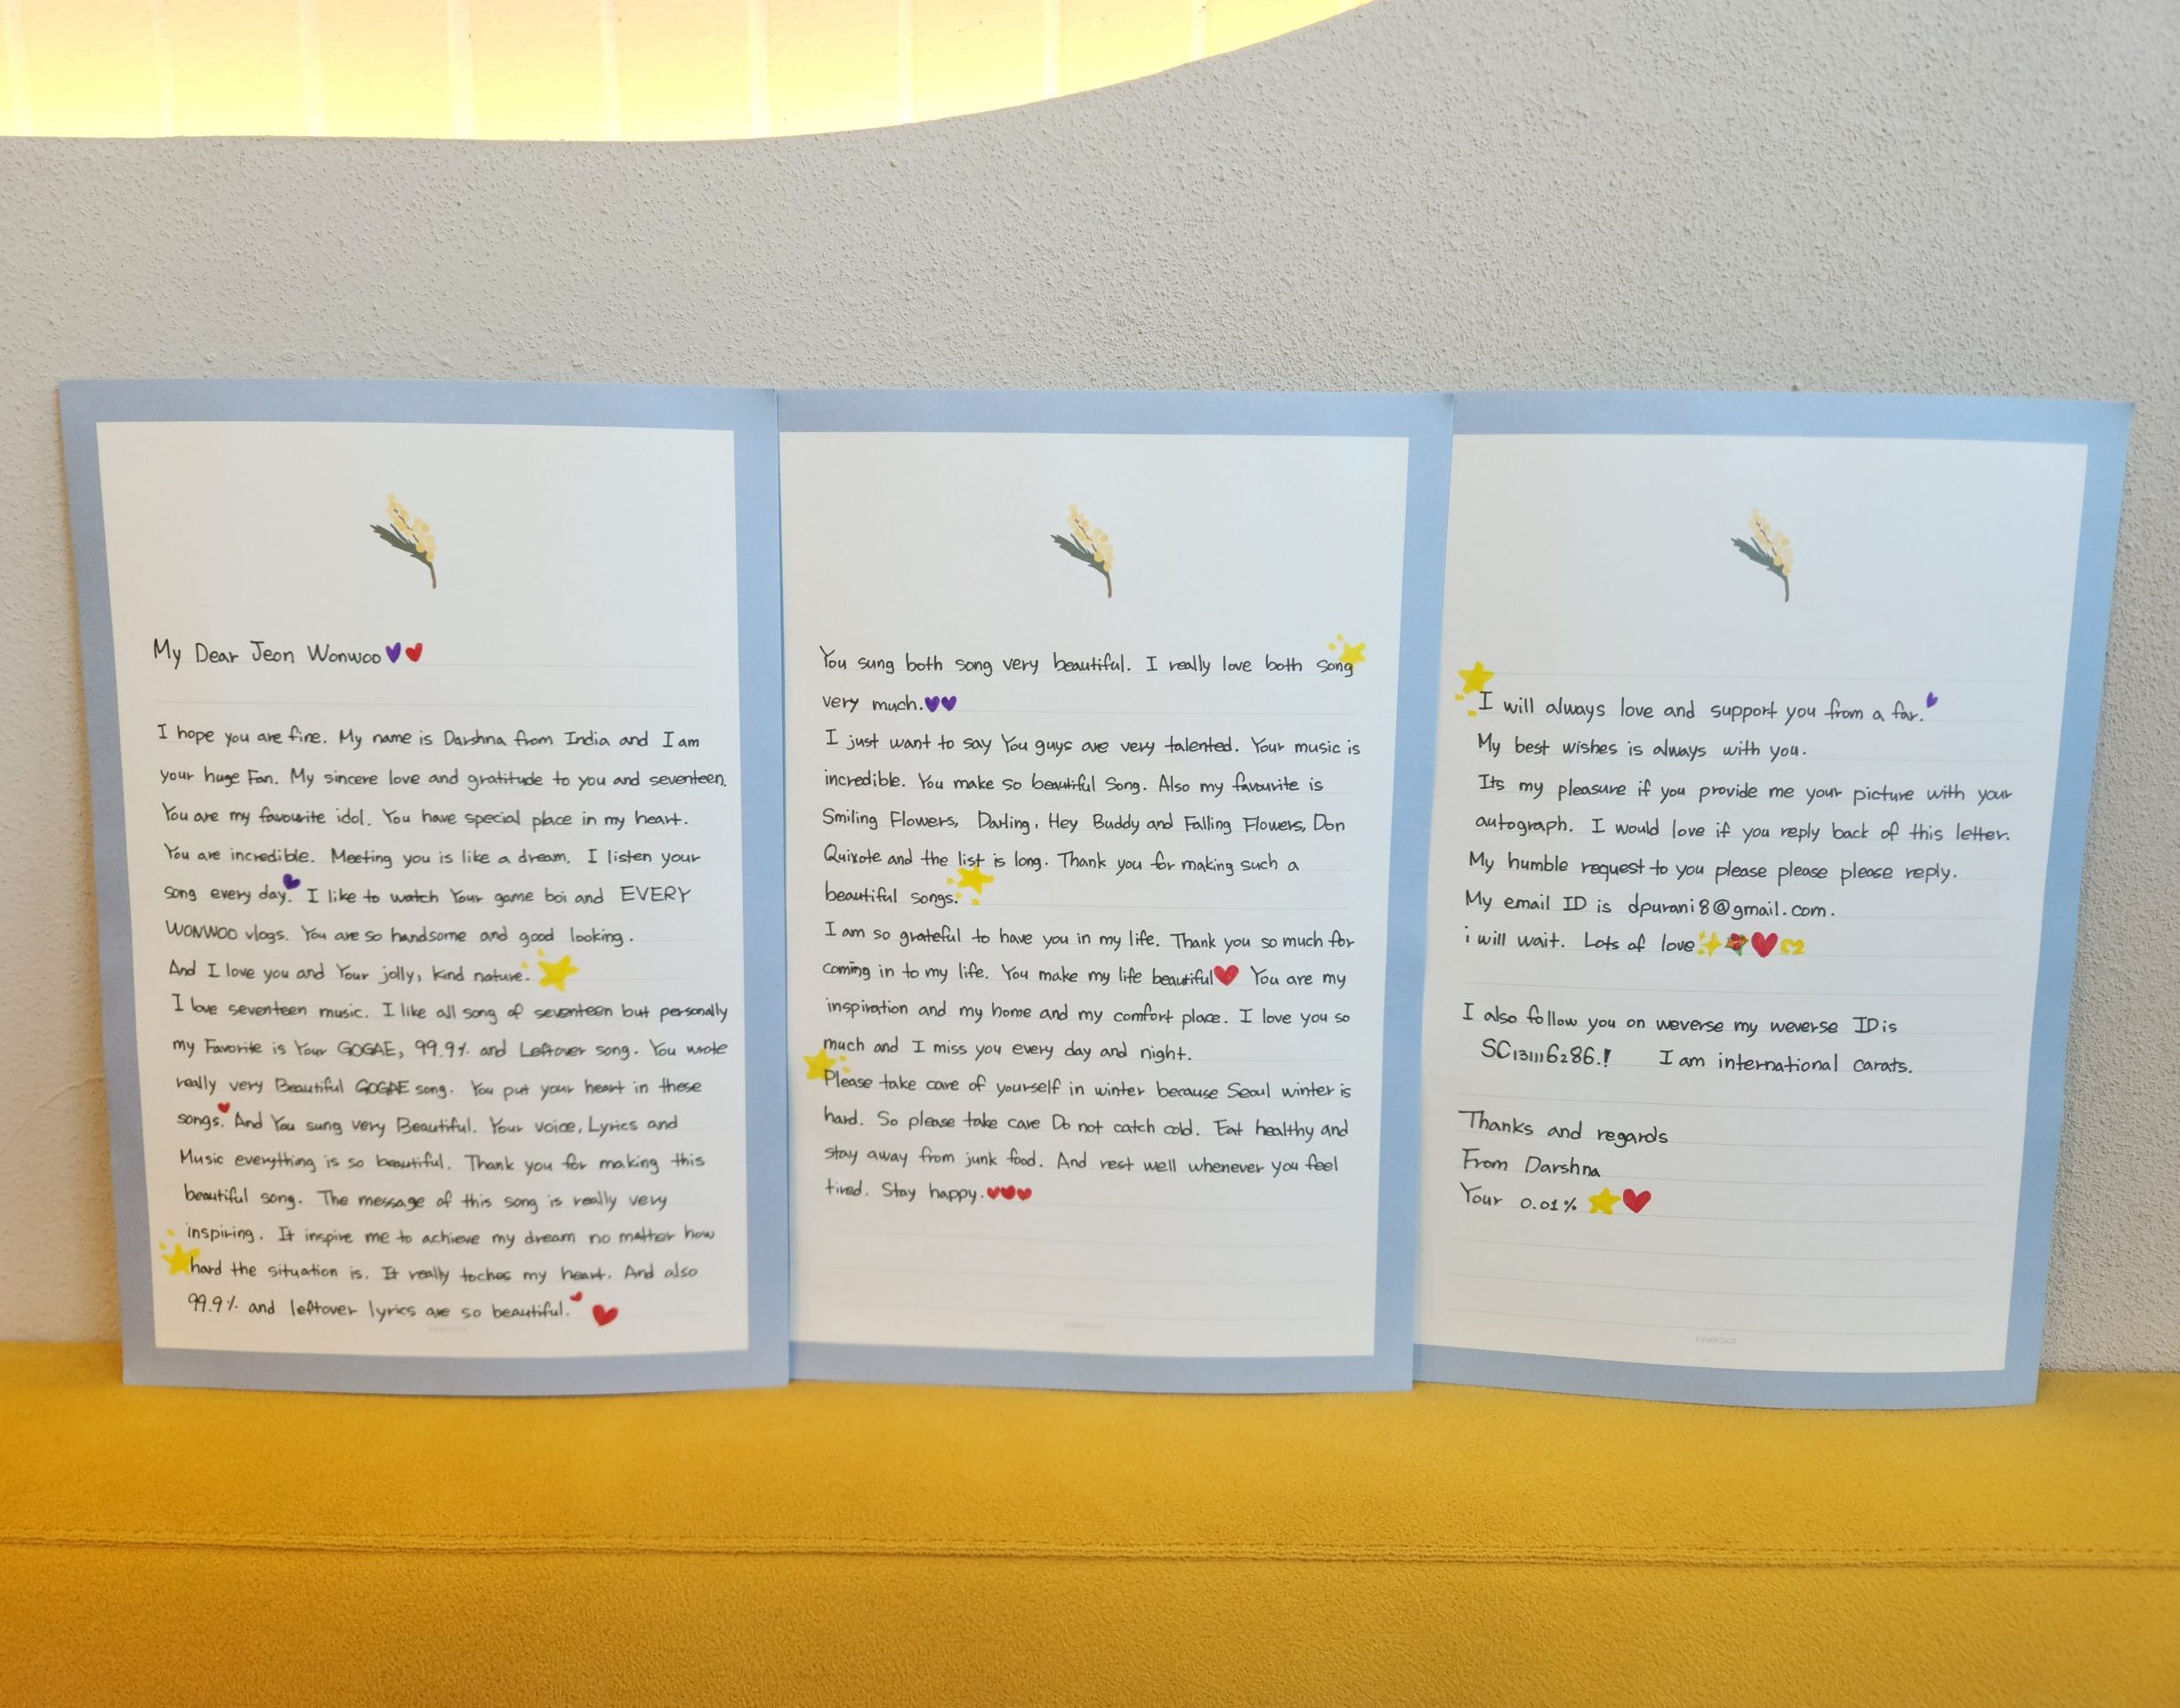 My Dear Jeon Wonwoo
I hope you are fine. My name is Darshna from India and I am
your huge Fan. My sincere love and gratitude to you and seventeen.
You are my favourite idol. You have special place in my heart.
You are incredible. Meeting you is like a dream. I listen your
song every day. I like to watch Your game boi and EVERY
WONWOO vlogs. You are so handsome and good looking.
And I love you and Your jolly, kind nature.
I love seventeen music. I like all song of seventeen but personally
my Favorite is Your GOGAE, 99.9% and Leftover song. You wrote
really very Beautiful GOGAE song. You put your heart in these
songs. And You sung very Beautiful. Your voice, Lyrics and
Music everything is so beautiful. Thank you for making this
beautiful song. The message of this song is really very
inspiring. It inspire me to achieve my dream no matter how
hard the situation is. It really toches my heart. And also
99.9% and leftover lyrics are so beautiful.
You sung both song very beautiful. I really love both song
very much.
I just want to say You guys are very talented. Your music is
incredible. You make so beautiful Song. Also my favourite is
Smiling Flowers, Darling, Hey Buddy and Falling Flowers, Don
Quixote and the list is long. Thank you for making such a
beautiful songs.
I am so grateful to have you in my life. Thank you so much for
coming in to my life. You make my life beautiful You are my
inspiration and my home and my comfort place. I love you so
much and I miss you every day and night.
Please take care of yourself in winter because Seoul winter is
hard. So please take care Do not catch cold. Eat healthy and
stay away from junk food. And rest well whenever you feel
tired. Stay happy.
PINKFOOT
I will always love and support you from a far.
My best wishes is always with you.
Its my pleasure if you provide me your picture with your
autograph. I would love if you reply back of this letter.
My humble request to you please please please reply.
My email ID is dpurani8@gmail.com.
i will wait. Lots of love
I also follow you on weverse my weverse ID is
SC131116286.! I am international carats.
Thanks and regards
From Darshna
Your 0.01%
PINKFOOT